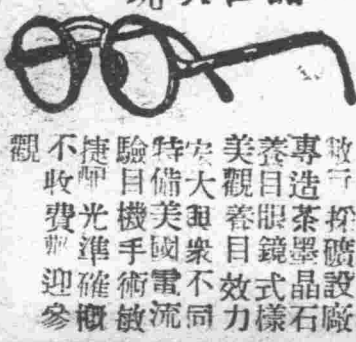 敝行採礦設廠
專造茶墨晶石
養目眼鏡式樣
美觀養目效力
宏大與衆不同
特備美國電流
驗目機手術敏
捷配光準確概
不收費歡迎參
觀